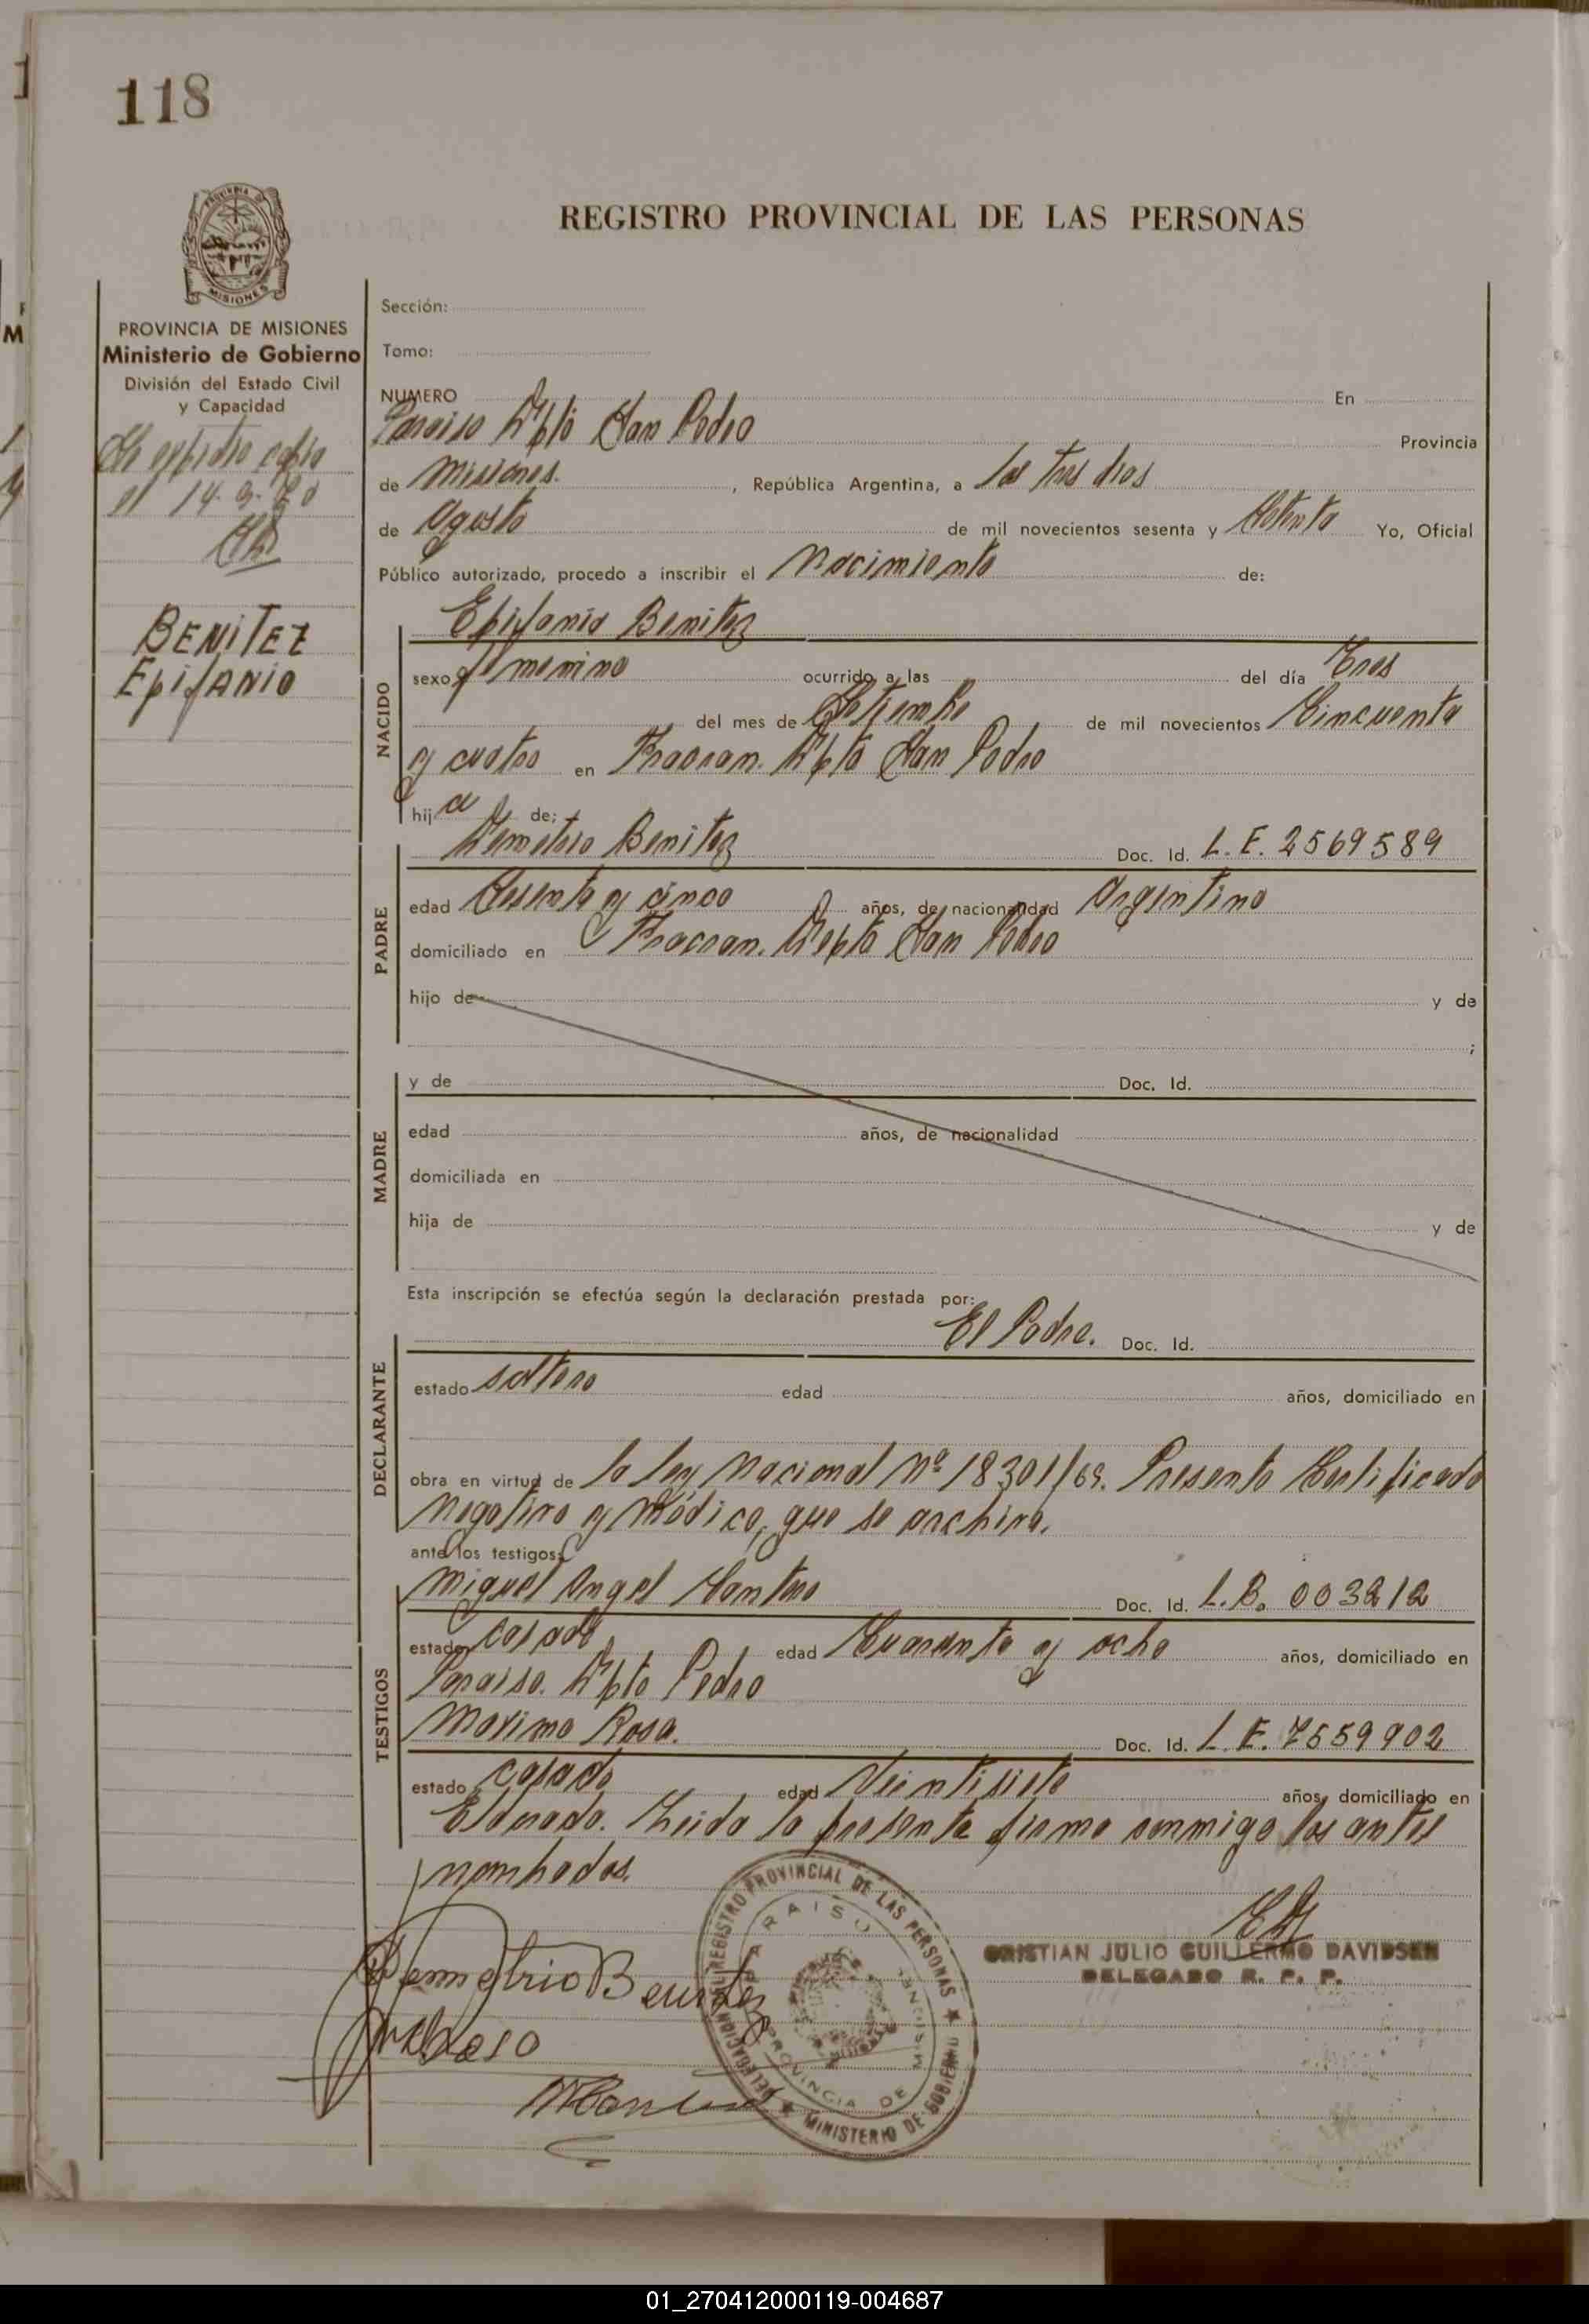 118
REGISTRO PROVINCIAL DE LAS PERSONAS
PROVINCIA DE MISIONES
Ministerio de Gobierno
División del Estado Civil
y Capacidad
Se expidio copia
el 14-9-70
BENITEZ
EpifANIO
Sección:
Tomo:
NUMERO En
Paraiso Dpto San Pedro Provincia
de Misiones. , República Argentina, a los tres dias
de Agosto de mil novecientos sesenta y setenta Yo, Oficial
Público autorizado, procedo a inscribir el Nacimiento de:
NACIDO
Epifania Benitez
sexo femenino ocurrido a las del día Tres
del mes de Setiembre de mil novecientos Cincuenta
y cuatro en Fracran. Dpto San Pedro
hij a de;
PADRE
Demetrio Benitez Doc. Id. L.E. 2569589
edad Sesenta y cinco años, de nacionalidad Argentino
domiciliado en Fracran. Depto San Pedro
hijo de y de
;
MADRE
y de Doc. Id.
edad años, de nacionalidad
domiciliada en
hija de y de
Esta inscripción se efectúa según la declaración prestada por:
DECLARANTE
El Padre. Doc. Id.
estado soltero edad años, domiciliado en
obra en virtud de la ley Nacional Nº 18301/69. Presento Certificado
Negativo y Médico, que se archiva.
ante los testigos:
TESTIGOS
Miguel Angel Doc. Id. L.B. 003212
estado casado edad Cuarenta y ocho años, domiciliado en
Paraiso. Dpto Pedro
Maximo Rosa. Doc. Id. L.E. 7559902
estado casado edad Veintisiete años, domiciliado en
Eldorado. Leida la presente firma conmigo los antes
nombrados.
CRISTIAN JULIO GUILLERMO DAVIDSEN
DELEGADO R. P. P.
Demetrio Benitez
DELEGACION DEL REGISTRO PROVINCIAL DE LAS PERSONAS ★ MINISTERIO DE GOBIERNO ★
PARAISO
PROVINCIA DE MISIONES
01_270412000119-004687